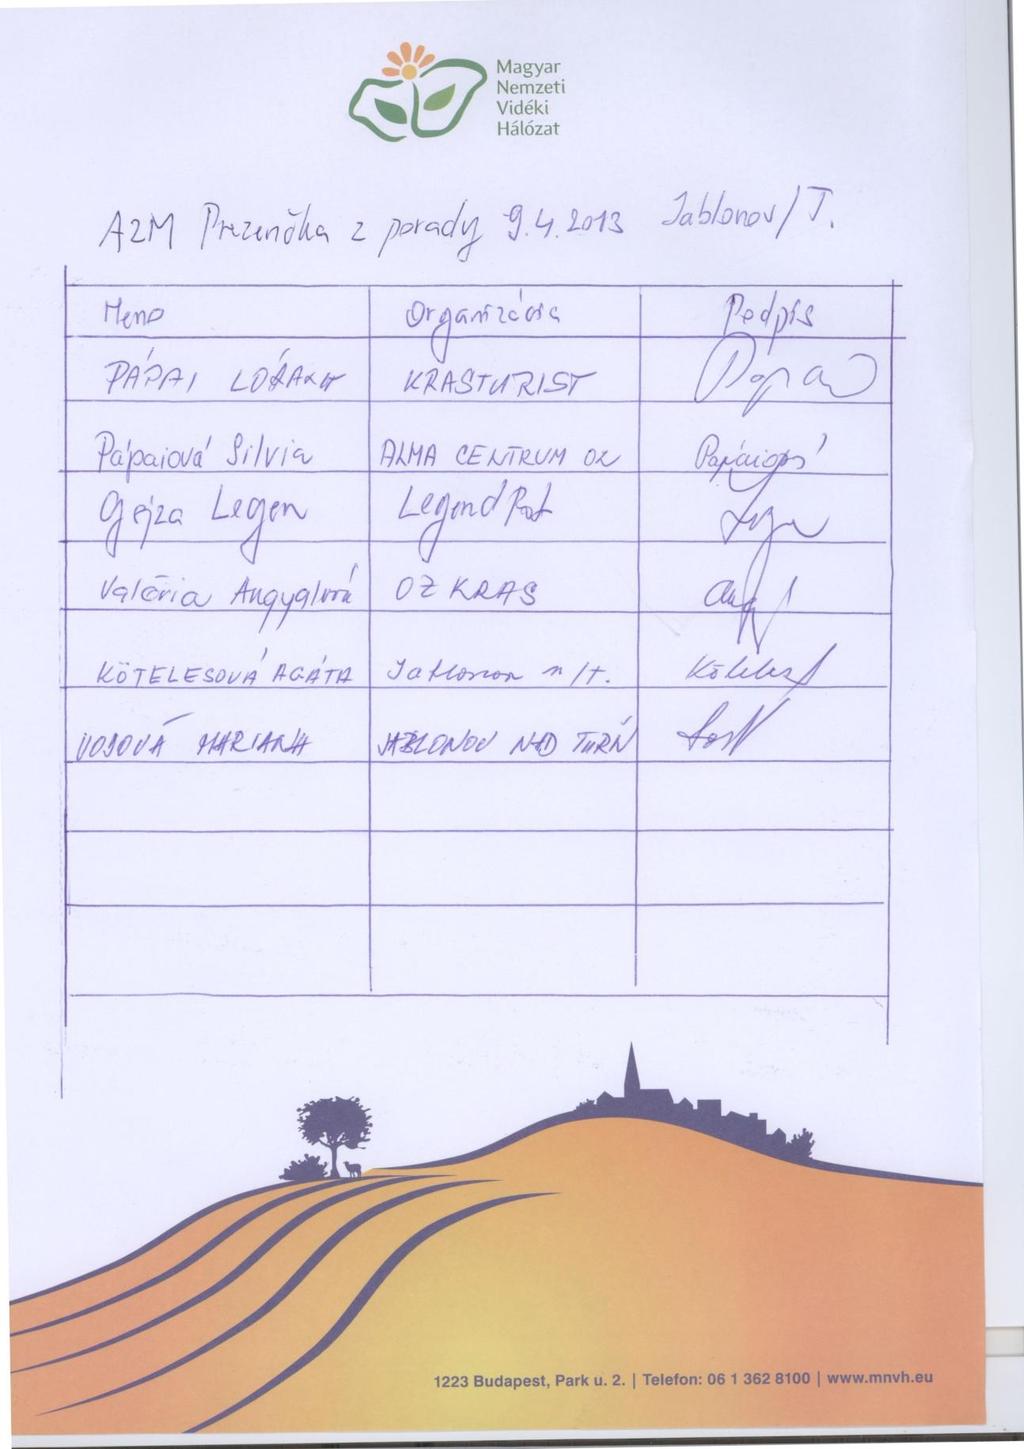 Magyar
Nemzeti
Vidéki
Hálózat
A2M Prezenčka z porady 9.4.2013 Jablonov/T.
Meno Organizácia Podpis
PÁPAI LÓRÁNT KRASTURIST
Pápaiová Silvia ALMA CENTRUM OZ Pápaiová
Gejza Legen
Valéria Angyalová OZ KRAS
KÖTELESOVÁ AGÁTA Jablonov n/T.
MARIANA JABLONOV NAD TURŇ
1223 Budapest, Park u. 2. | Telefon: 06 1 362 8100 | www.mnvh.eu